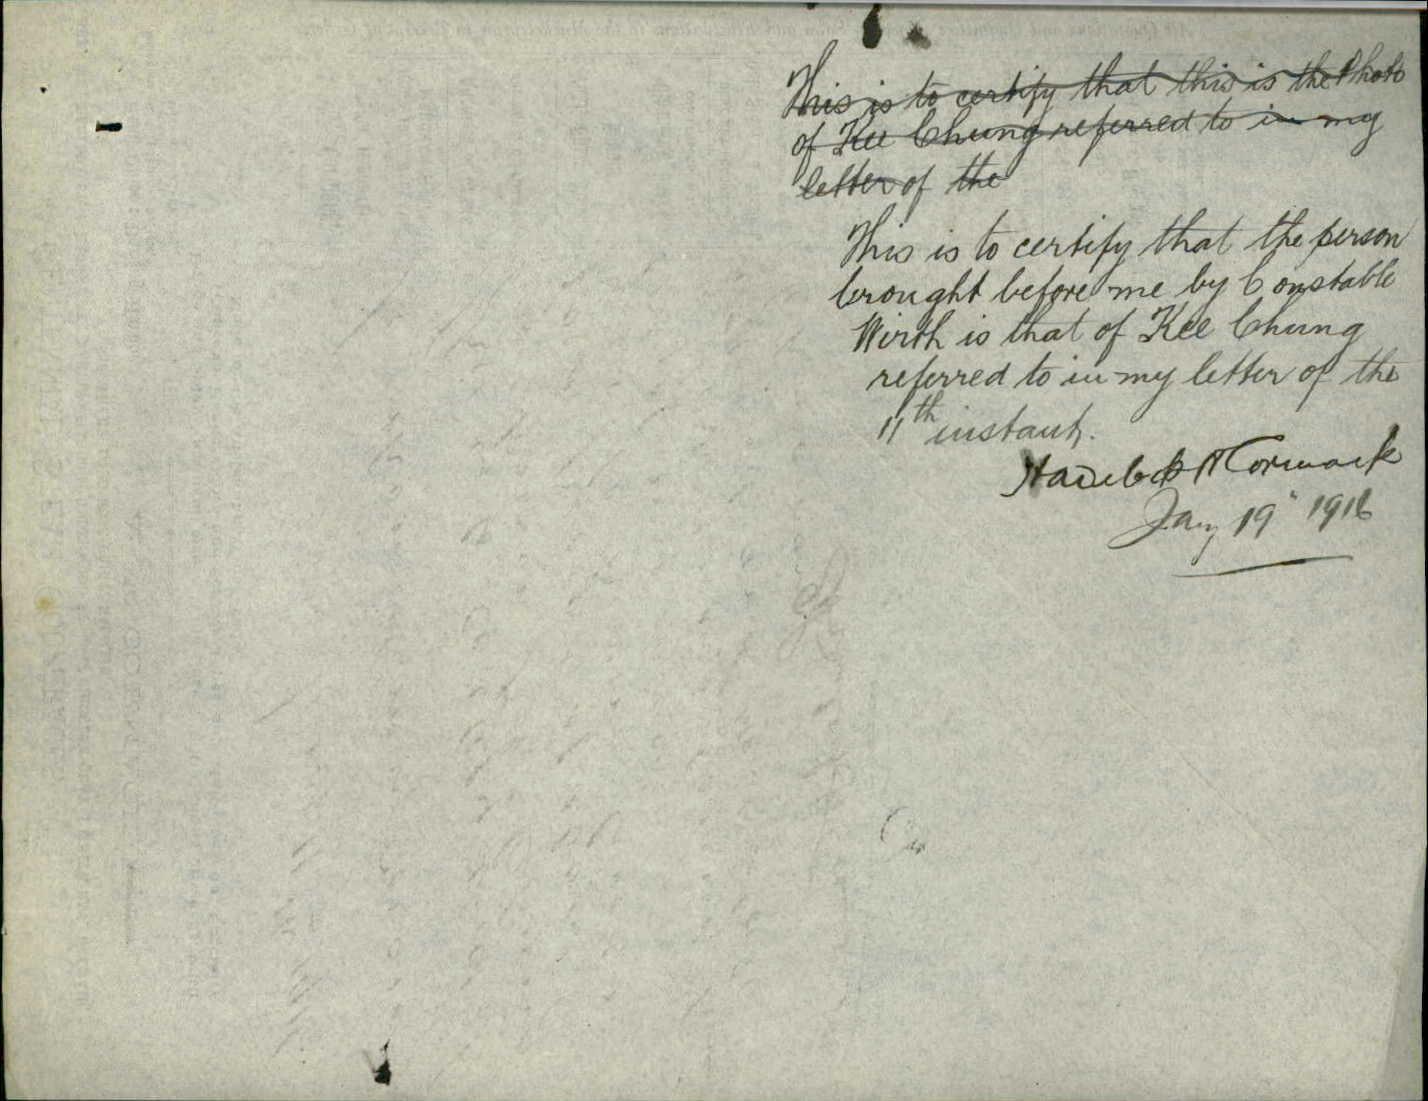 This is to certify that this is the Photo
of Kee Chung referred to in my
letter of the
This is to certify that the person
brought before me by Constable
Wirth is that of Kee Chung
referred to in my letter of the
11th instant.
McCormack
Jany 19" 1916